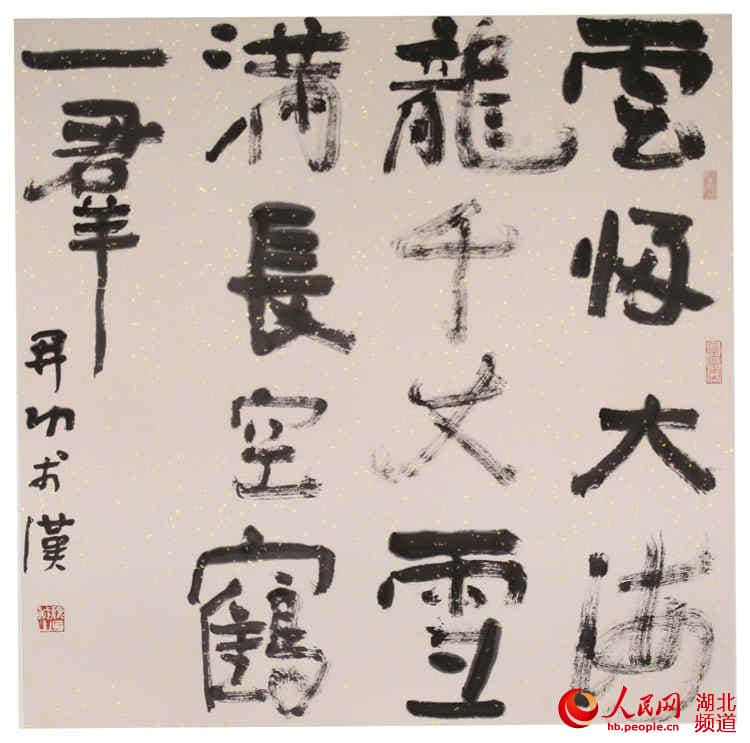 雲帰大海
龍千丈雪
滿長空鶴
一羣
功 漢
人民网 湖北频道
hb.people.cn